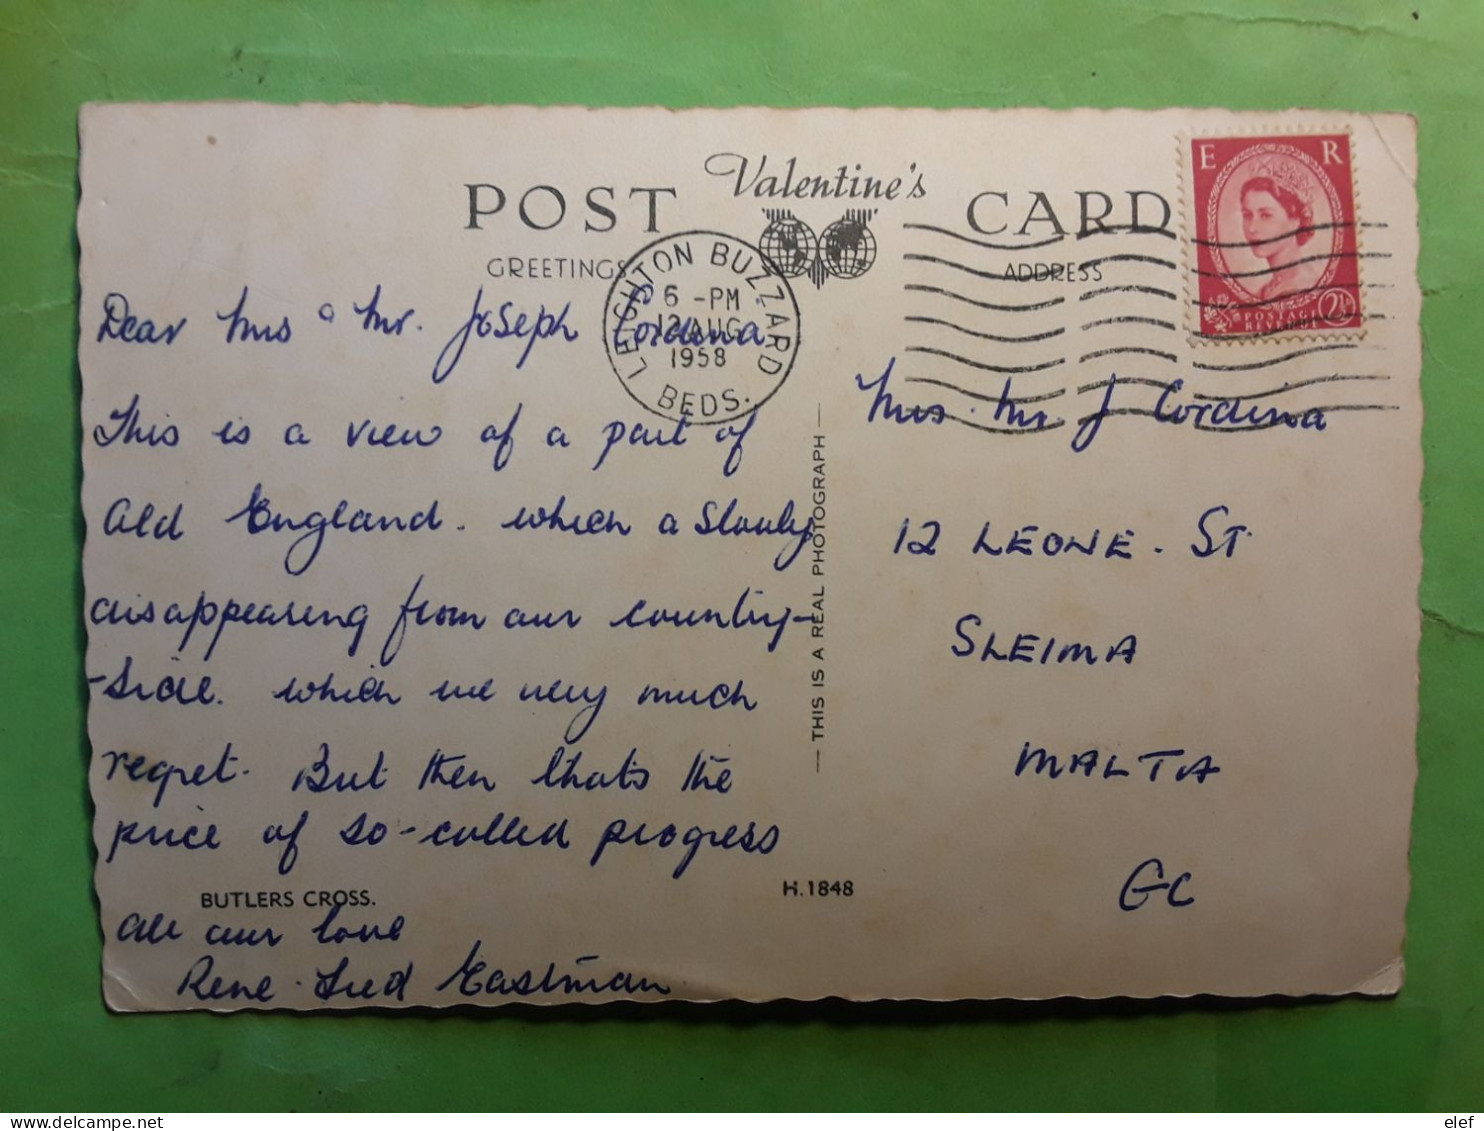 Valentine's
POST CARD
GREETINGS
ADDRESS
E R
POSTAGE
REVENUE
2½
LEIGHTON BUZZARD
6 - PM
12 AUG
1958
BEDS.
Dear Mrs & Mr. Joseph Cordina
This is a view of a part of
Old England. which a Slowly
disappearing from our country-
-side. which we very much
regret. But then thats the
price of so-called progress
BUTLERS CROSS.
H.1848
All our love
Rene. Fred Eastman
— THIS IS A REAL PHOTOGRAPH —
Mrs. Mr J Cordina
12 LEONE. ST.
SLEIMA
MALTA
GC
elef